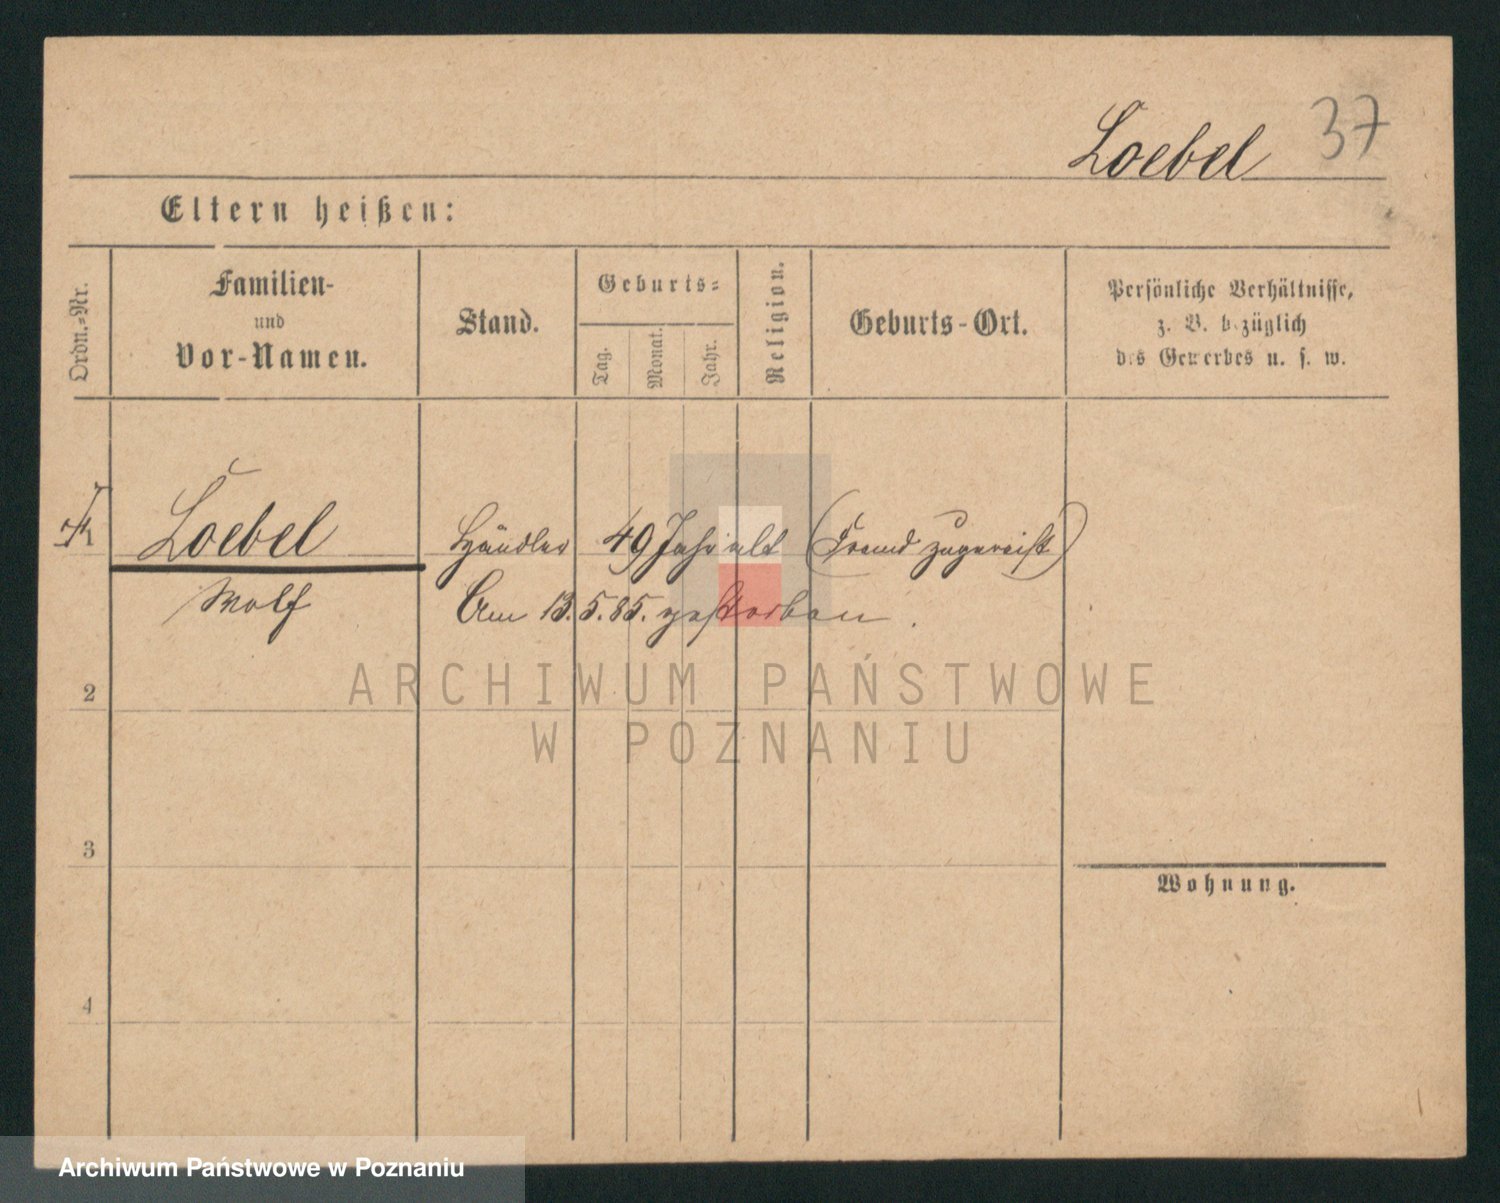 Loebel 37
Eltern heißen:
Ordn.-Nr.
Familien-
und
Vor-Namen.
Stand.
Geburts-
Tag.
Monat.
Jahr.
Religion.
Geburts-Ort.
Persönliche Verhältnisse,
z. B. bezüglich
des Gewerbes u. s. w.
Loebel Händler 49 Jahr alt (Fremd zugereist)
Wolf Am 13.5.85. gestorben.
2
3
4
Wohnung.
ARCHIWUM PAŃSTWOWE
W POZNANIU
Archiwum Państwowe w Poznaniu